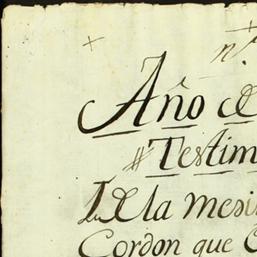 n.
Año de
Testim
de la mesi
Cordon que C